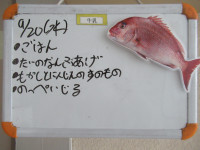 9/20(水)
•ごはん
•たいのなんこあげ
•もかしとにんじんのすのもの
•のっぺいじる